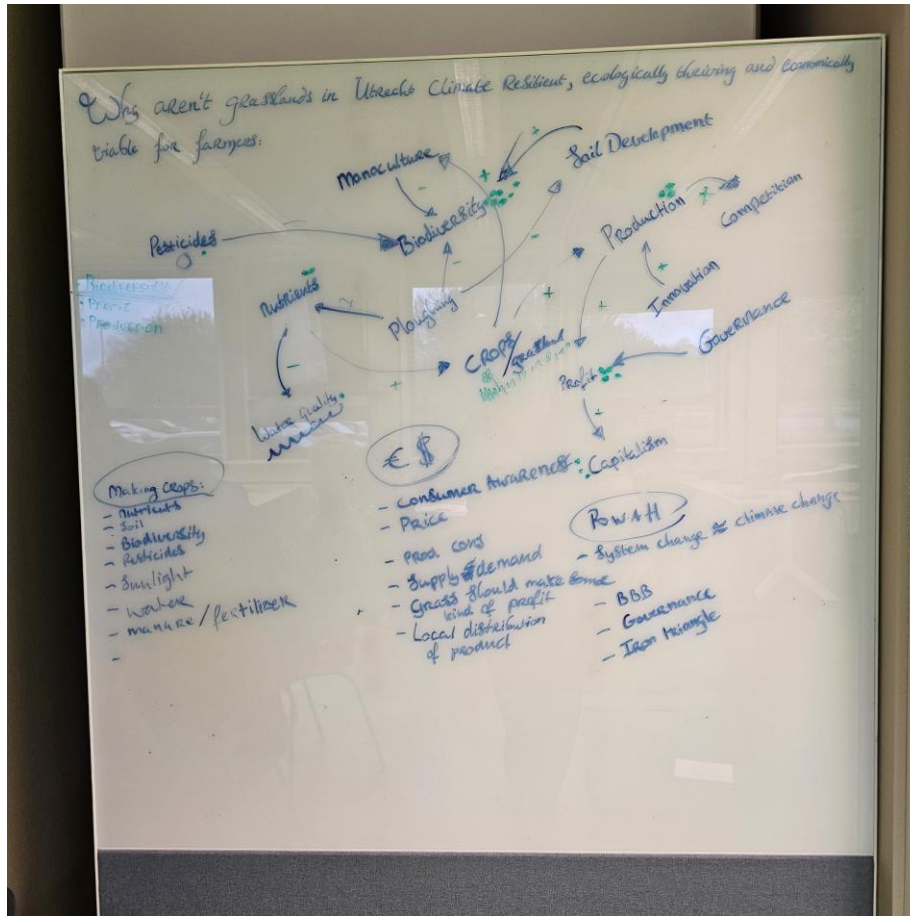 Why aren't grasslands in Utrecht Climate Resilient, ecologically thriving and economically
viable for farmers:
Monoculture
Soil Development
+
+
-
Biodiversity
Production
+
Competition
Pesticides
-
-
-
• Biodiversity
• Profit
• Production
Nutrients
Ploughing
+
+
Innovation
~
+
CROPS/
grassland
Governance
-
+
Profit
Water quality
+
Capitalism
Making Crops:
- Nutrients
- Soil
- Biodiversity
- Pesticides
- Sunlight
- water
- manure/fertilizer
-
€ $
- Consumer Awareness
- Price
- Prod cons
- Supply demand
- Grass Should make some
kind of profit
- Local distribution
of product
POWAH
- System change ≈ climate change
- BBB
- Governance
- Iron triangle